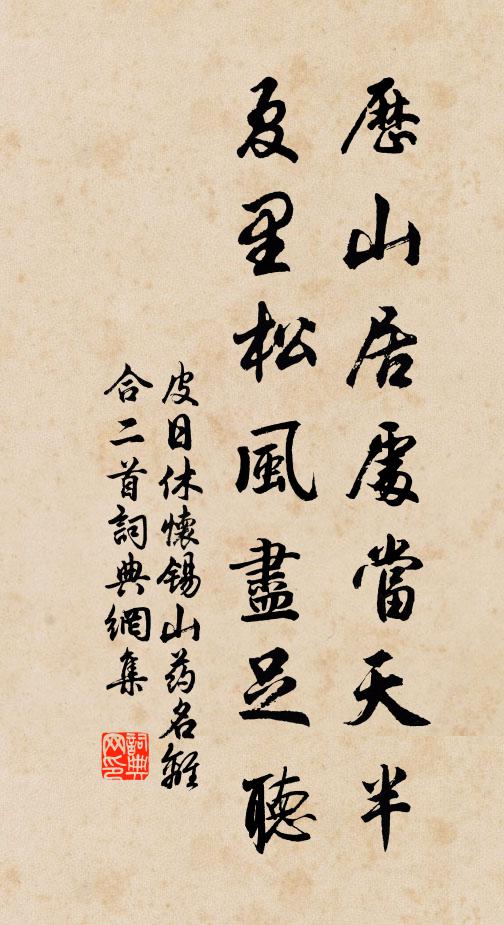 歷山居處當天半
夏里松風盡足聽
皮日休懷錫山药名離
合二首詞典網集
詞典網印